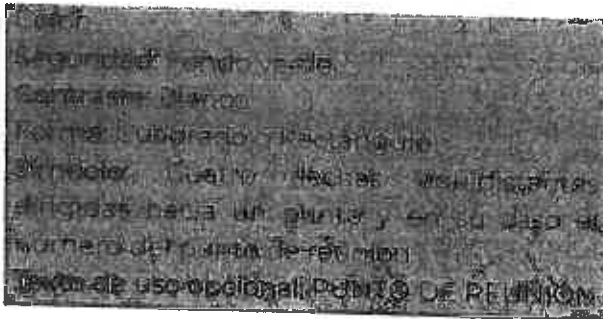 Color:
Seguridad: Fondo verde
Contraste: Blanco
Forma: Cuadrado o rectángulo
Símbolo: Cuatro flechas equidistantes
dirigidas hacia un punto y en su caso el
número del punto de reunión
Texto de uso opcional: PUNTO DE REUNIÓN